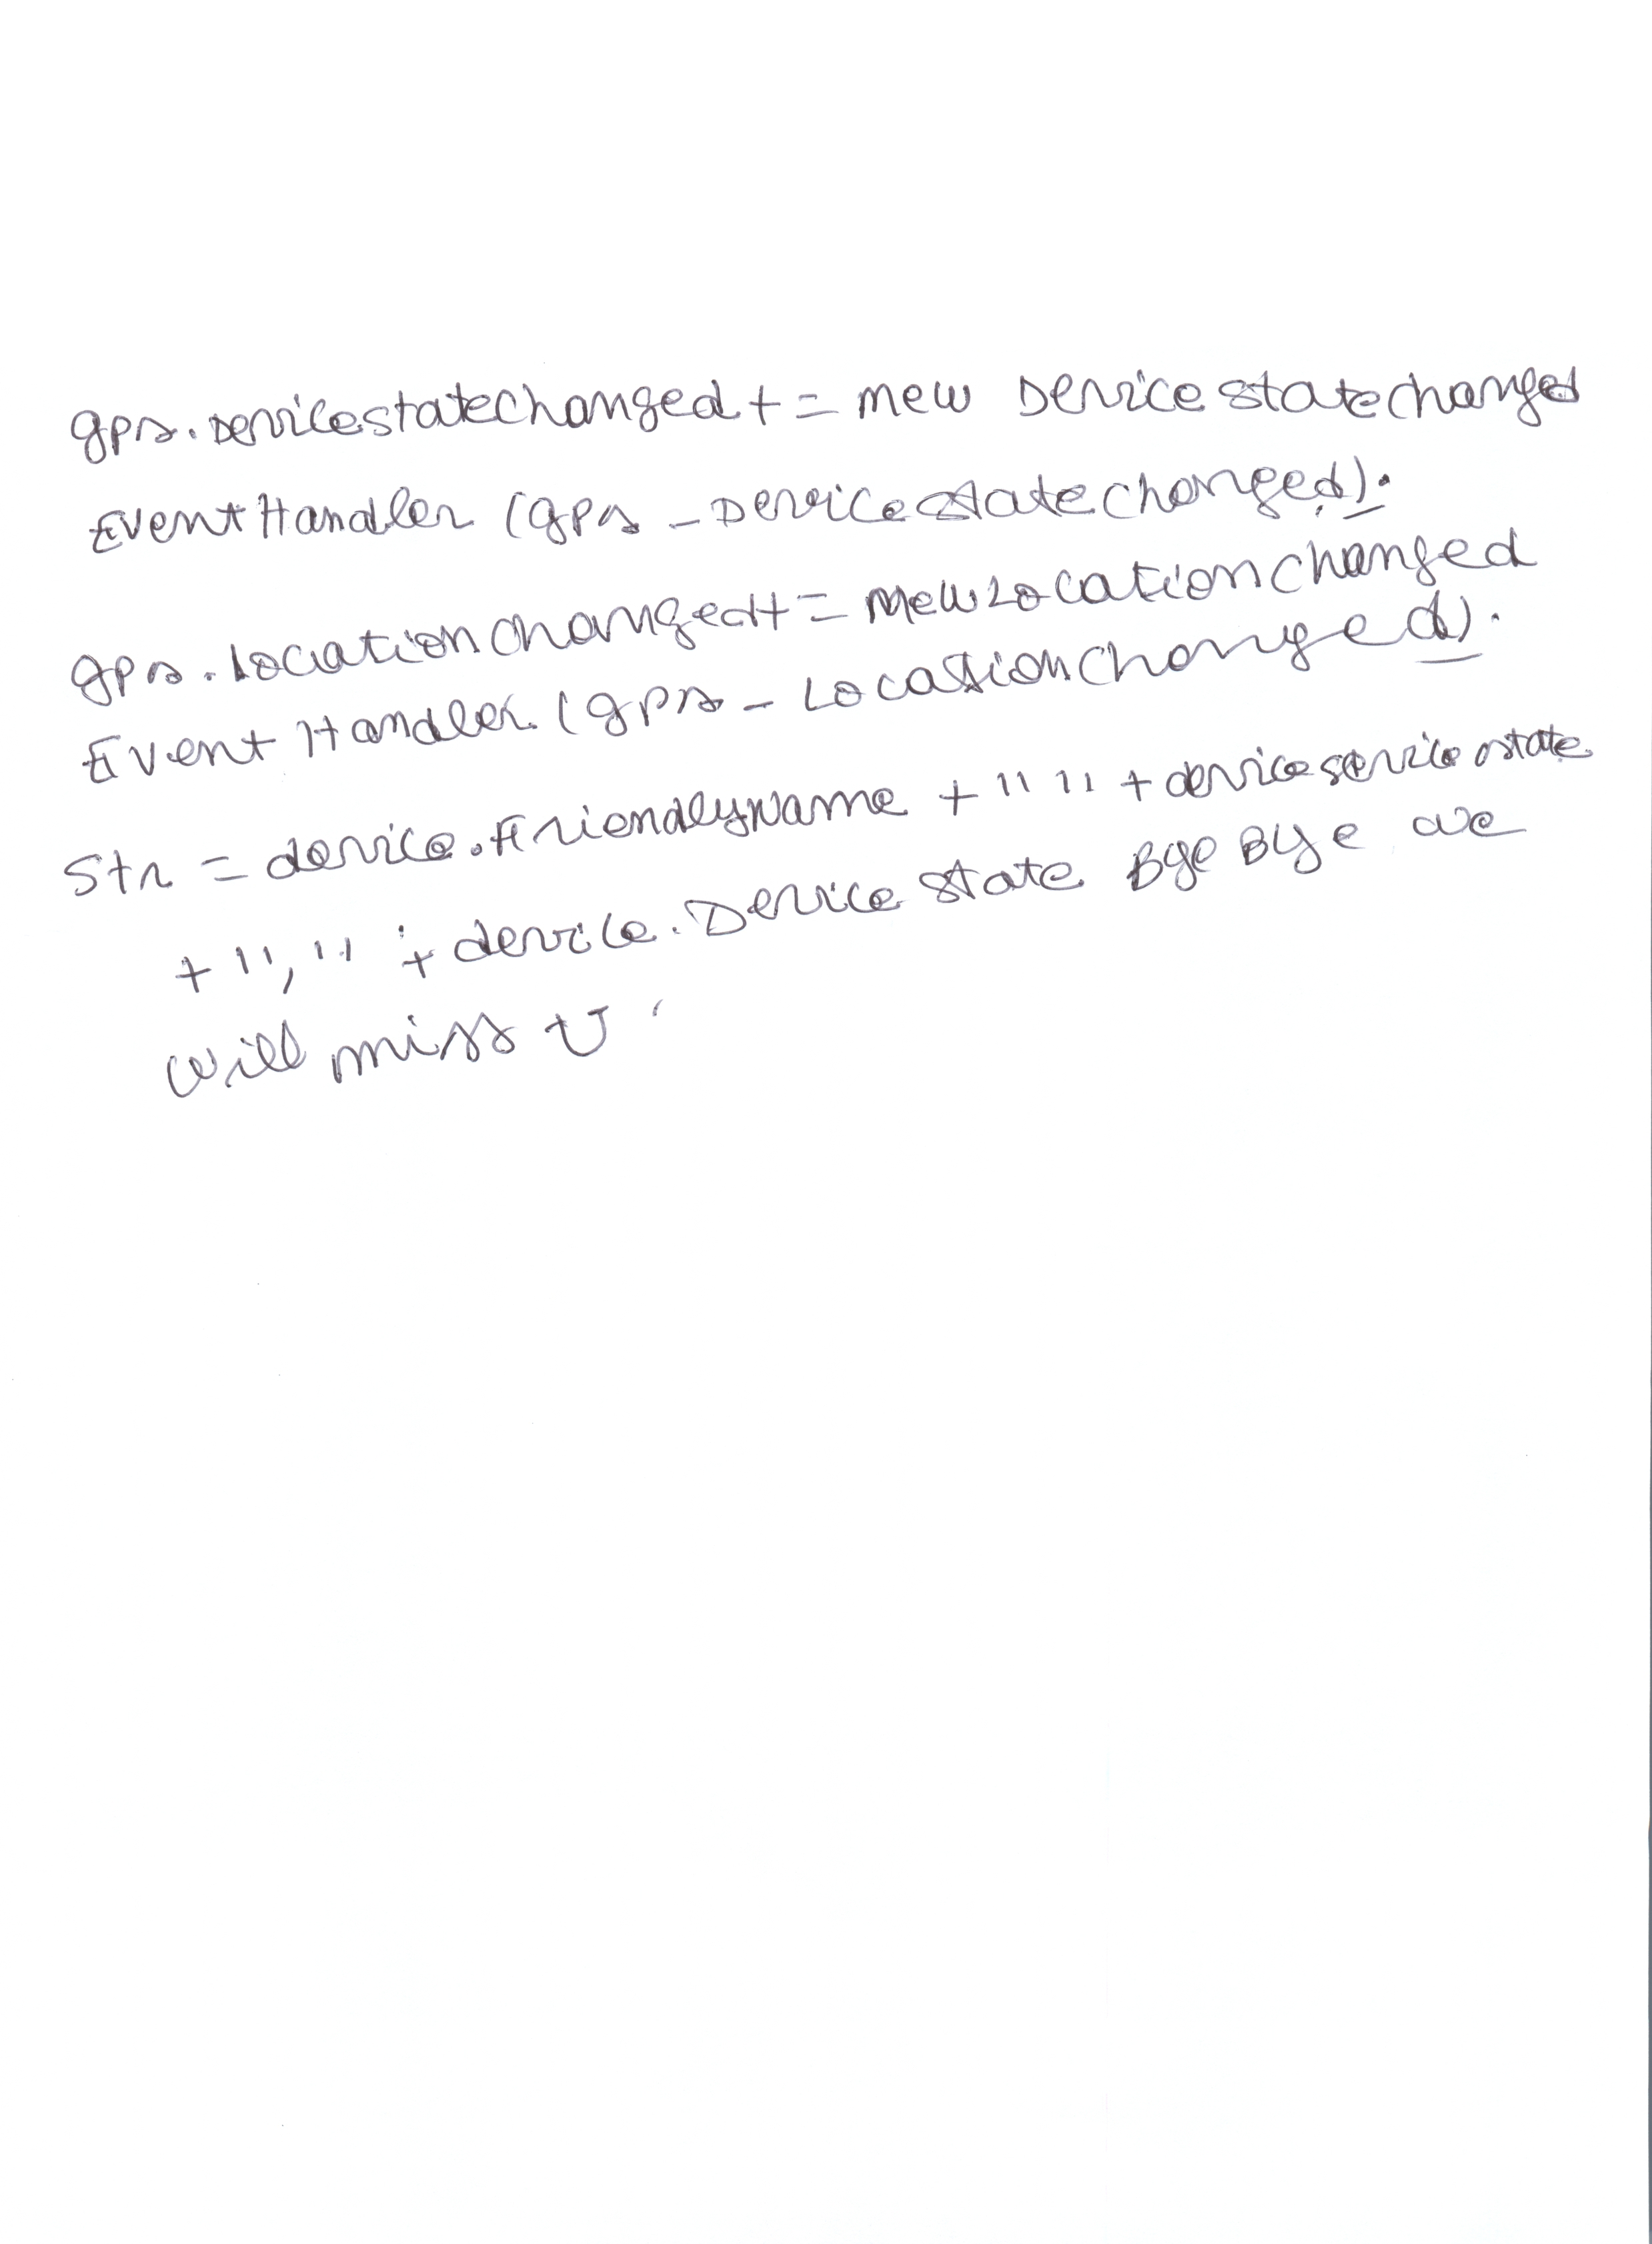 gps.Devicestatechanged += new Device statechanged
EventHandler (gps _ Devicestatechanged).
gps.Locationchanged+= new Locationchanged
Event Handler (gps _ Locationchanged).
Str = device.FriendlyName + " " + deviceservice state
+ "," + device.Device state Bye Bye we
will miss U .